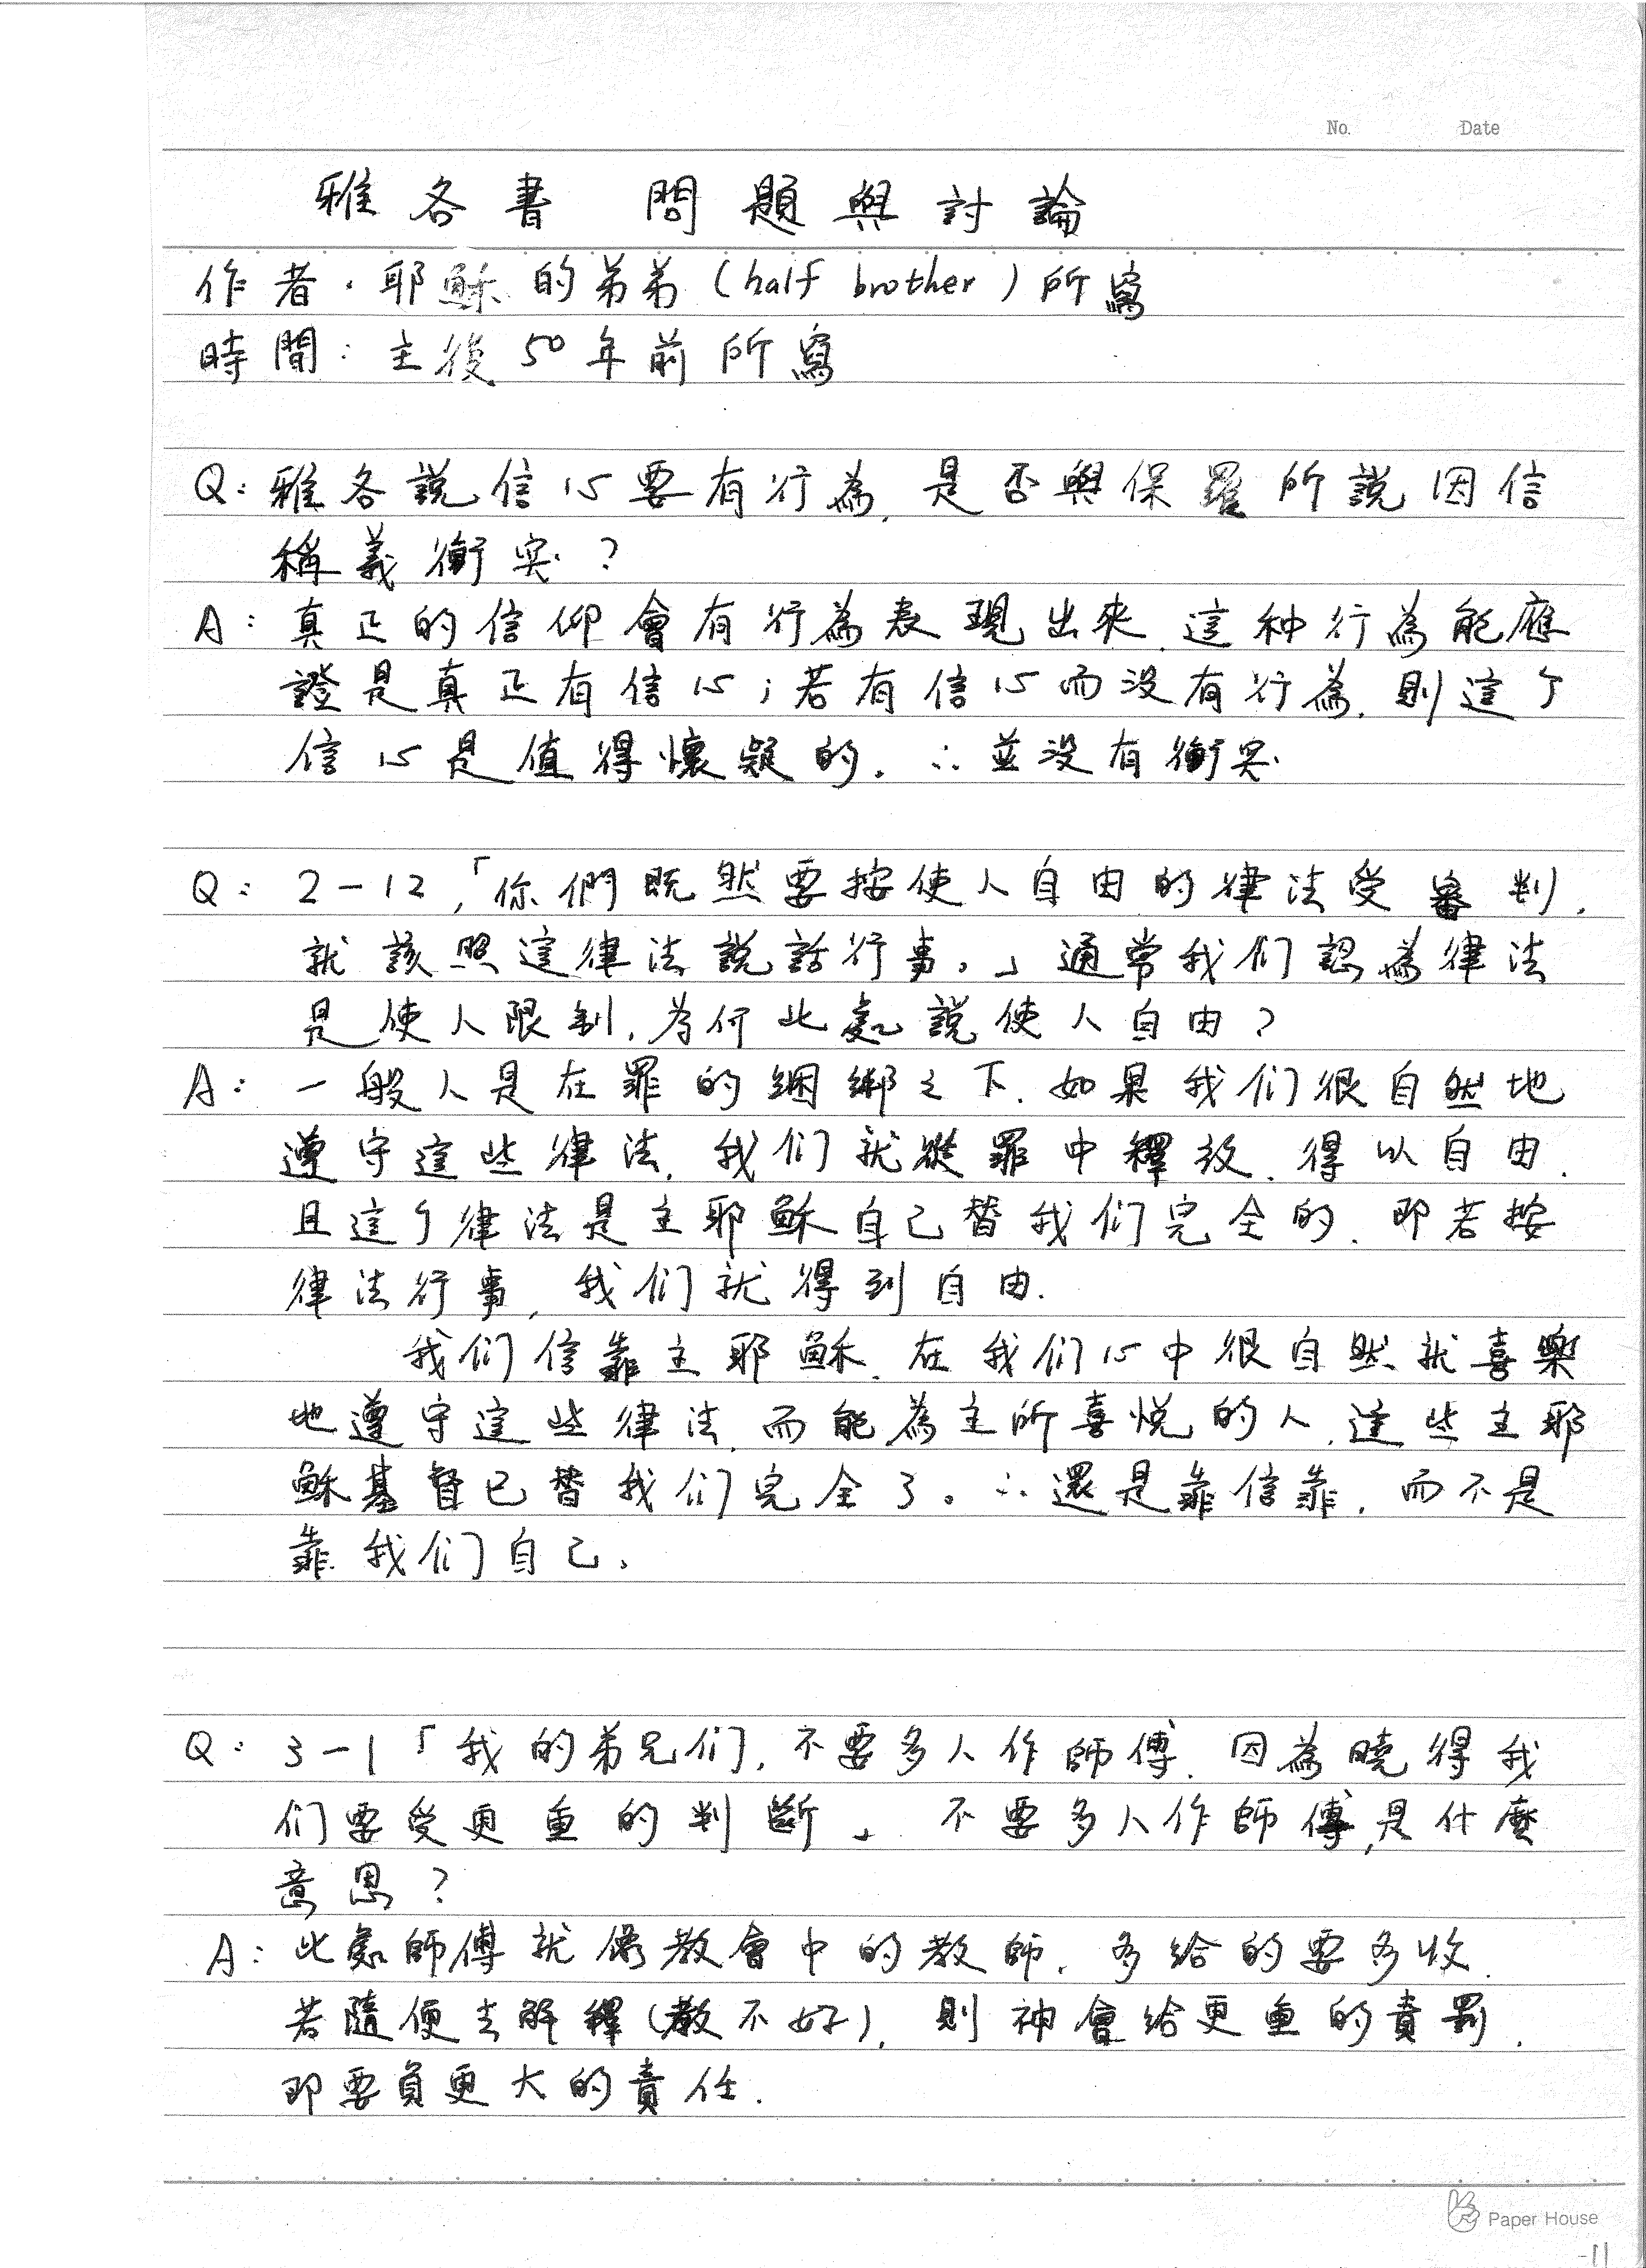 No. Date
雅各書 問題與討論
作者：耶穌的弟弟(half brother)所寫
時間：主後50年前所寫
Q：雅各說信心要有行為，是否與保羅所說因信
稱義衝突？
A：真正的信仰會有行為表現出來，這种行為能應
證是真正有信心；若有信心而没有行為，則這个
信心是值得懷疑的。∴並没有衝突
Q：2-12，「你們既然要按使人自由的律法受審判，
就該照這律法說話行事。」通常我们認為律法
是使人限制，為何此處說使人自由？
A：一般人是在罪的綑綁之下，如果我们很自然地
遵守這些律法，我们就從罪中釋放，得以自由，
且這个律法是主耶穌自己替我们完全的，即若按
律法行事，我们就得到自由.
我们信靠主耶穌，在我们心中很自然就喜樂
地遵守這些律法，而能為主所喜悅的人，這些主耶
穌基督已替我们完全了。∴還是靠信靠，而不是
靠我们自己。
Q：3-1「我的弟兄们，不要多人作師傅，因為曉得我
们要受更重的判斷」。不要多人作師傅，是什麼
意思？
A：此處師傅就像教會中的教師，多給的要多收，
若隨便去解釋(教不好)，則神會給更重的責罰，
即要負更大的責任.
Paper House
-11